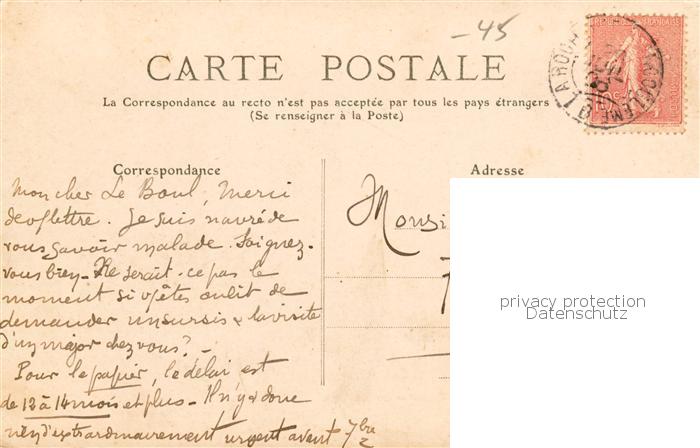 -45
CARTE POSTALE
La Correspondance au recto n'est pas acceptée par tous les pays étrangers
(Se renseigner à la Poste)
REPUBLIQUE FRANÇAISE
10c
Correspondance
Adresse
Mon cher Le Boul, Merci
de v/lettre. Je suis navré de
vous savoir malade. Soignez-
vous bien - Ne serait-ce pas le
moment si v/êtes au lit de
demander un sursis & la visite
d'un major chez vous? -
Pour le papier, le délai est
de 12 à 14 mois et plus - Il n'y a donc
rien d'extraordinairement urgent avant 7bre
Monsi
privacy protection
Datenschutz